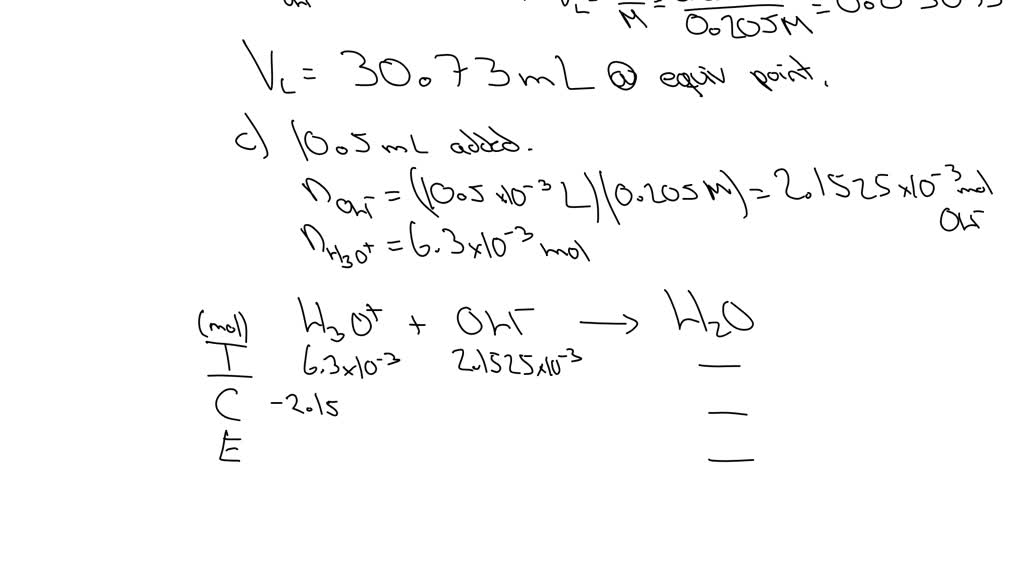 V_L = /M = /0.205M = 0.03073
V_L = 30.73 mL @ equiv point.
c) 10.5 mL added.
n_OH⁻ = (10.5 x10⁻³ L)(0.205 M) = 2.1525 x10⁻³ mol OH⁻
n_H₃O⁺ = 6.3 x10⁻³ mol
(mol) H₃O⁺ + OH⁻ → H₂O
I 6.3x10⁻³ 2.1525x10⁻³ —
C -2.15 —
E —